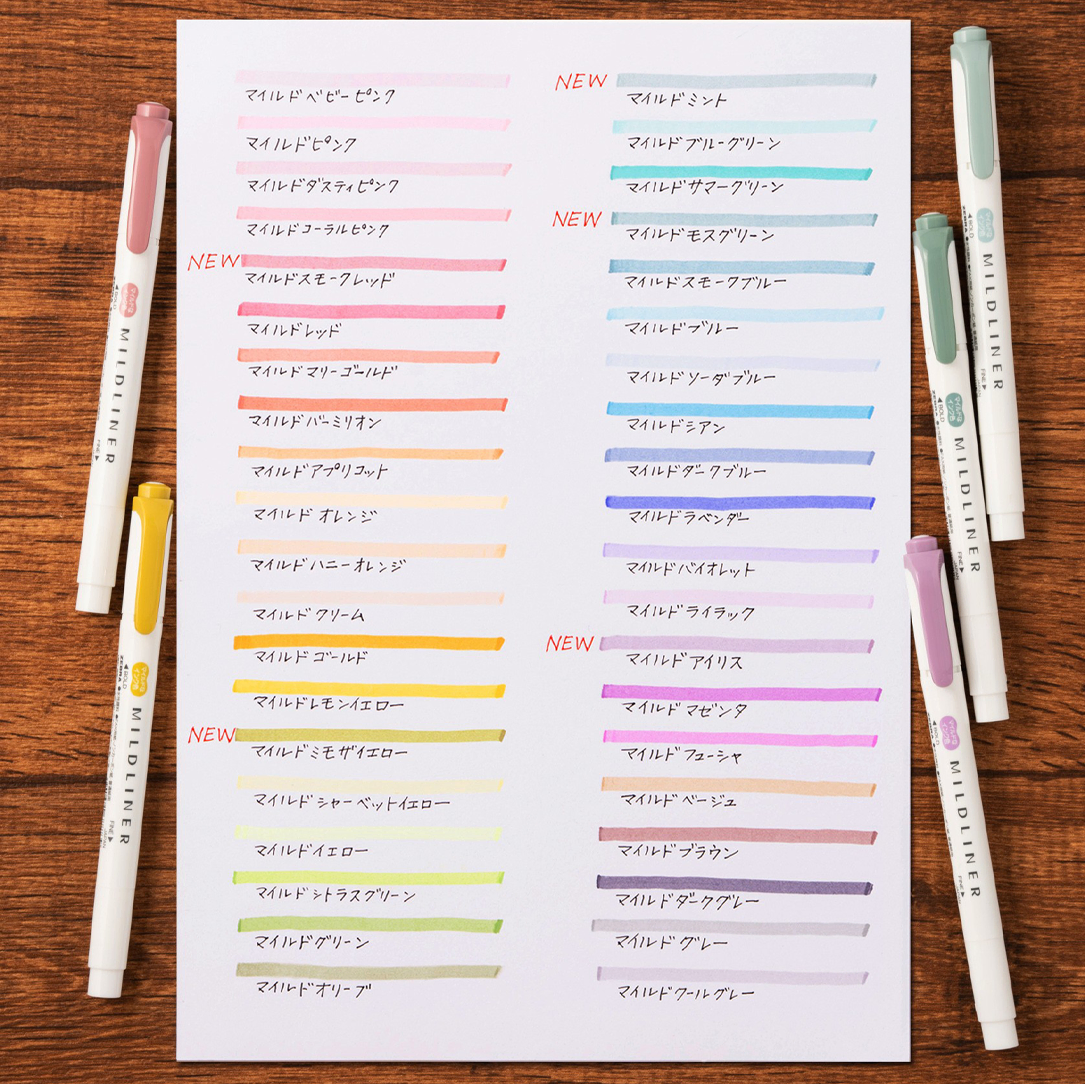 マイルドベビーピンク
マイルドピンク
マイルドダスティピンク
マイルドコーラルピンク
NEW
マイルドスモークレッド
マイルドレッド
マイルドマリーゴールド
マイルドバーミリオン
マイルドアプリコット
マイルドオレンジ
マイルドハニーオレンジ
マイルドクリーム
マイルドゴールド
マイルドレモンイエロー
NEW
マイルドミモザイエロー
マイルドシャーベットイエロー
マイルドイエロー
マイルドシトラスグリーン
マイルドグリーン
マイルドオリーブ
NEW
マイルドミント
マイルドブルーグリーン
マイルドサマーグリーン
NEW
マイルドモスグリーン
マイルドスモークブルー
マイルドブルー
マイルドソーダブルー
マイルドシアン
マイルドダークブルー
マイルドラベンダー
マイルドバイオレット
マイルドライラック
NEW
マイルドアイリス
マイルドマゼンタ
マイルドフューシャ
マイルドベージュ
マイルドブラウン
マイルドダークグレー
マイルドグレー
マイルドクールグレー
◀BOLD MILDLINER FINE▶
ZEBRA ◀BOLD MILDLINER FINE▶
ZEBRA ◀BOLD MILDLINER FINE▶
◀BOLD MILDLINER FINE▶
◀BOLD MILDLINER FINE▶